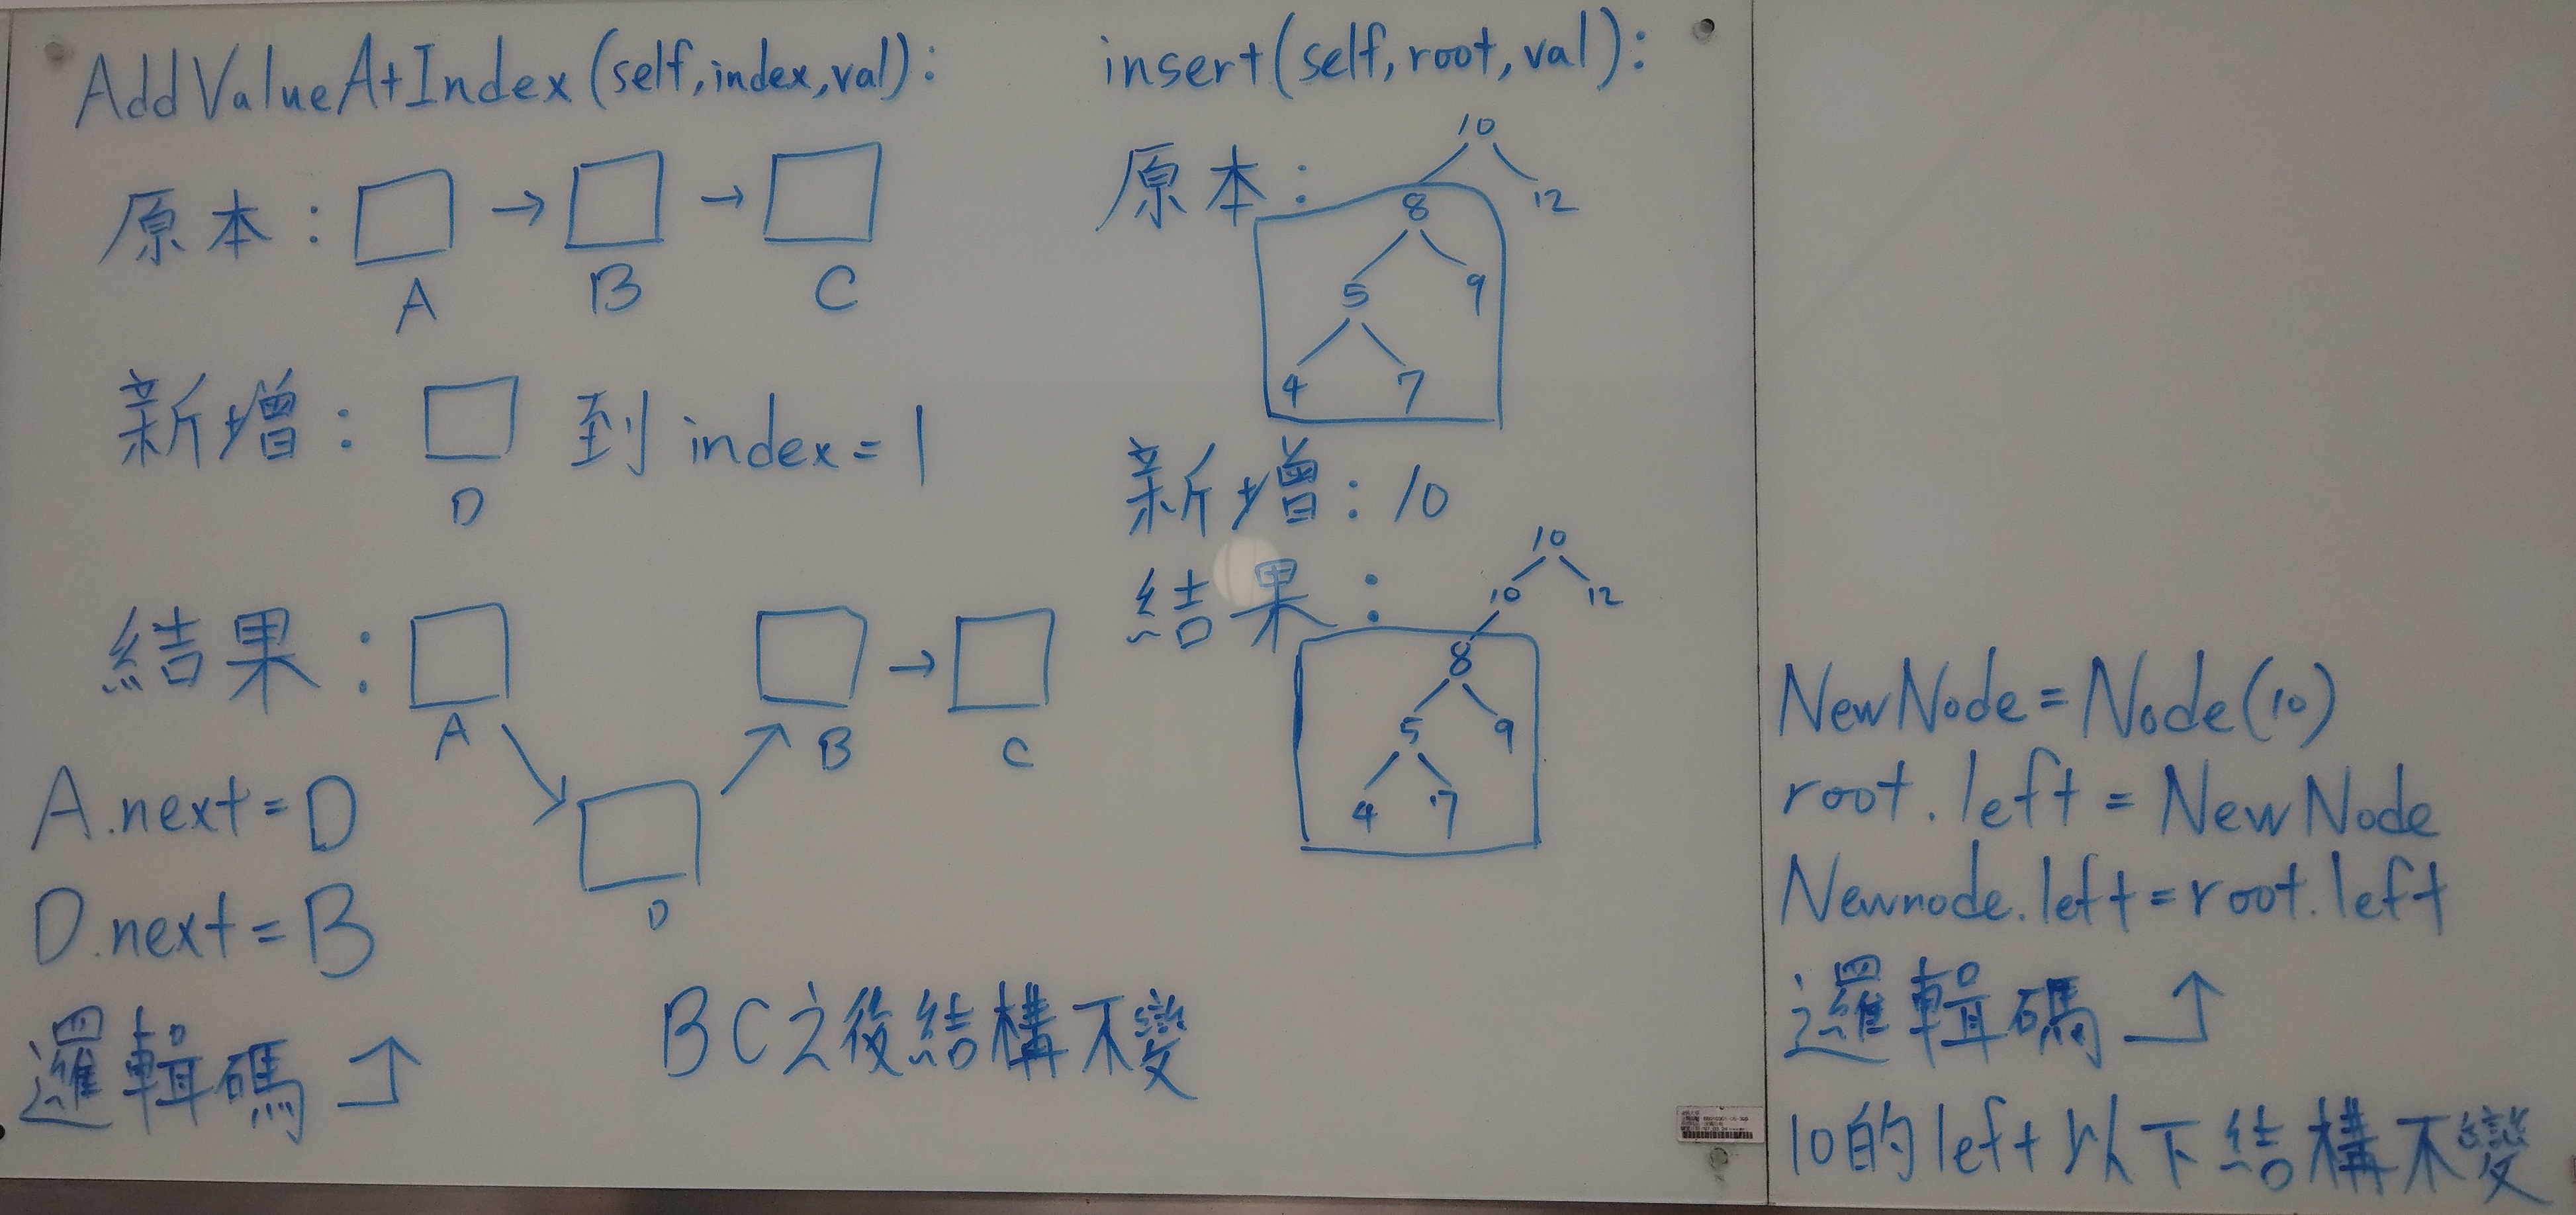 AddValueAtIndex(self,index,val):
原本：
A
B
C
新增：
D
到 index=1
結果：
A
B
C
D
A.next=D
D.next=B
邏輯碼
BC之後結構不變
insert(self,root,val):
原本：
10
8
12
5
9
4
7
新增：10
結果：
10
10
12
8
5
9
4
7
NewNode=Node(10)
root.left=NewNode
Newnode.left=root.left
邏輯碼
10的left以下結構不變